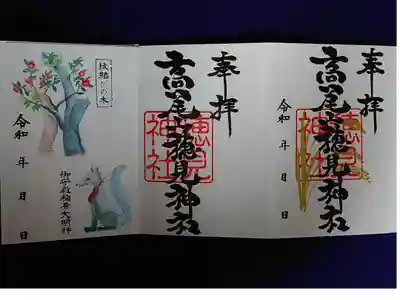 奉拝
高尾山穂見神社
穂見
神社
令和 年 月 日
奉拝
高尾山穂見神社
穂見
神社
縁結びの木
令和 年 月 日
稲荷大明神